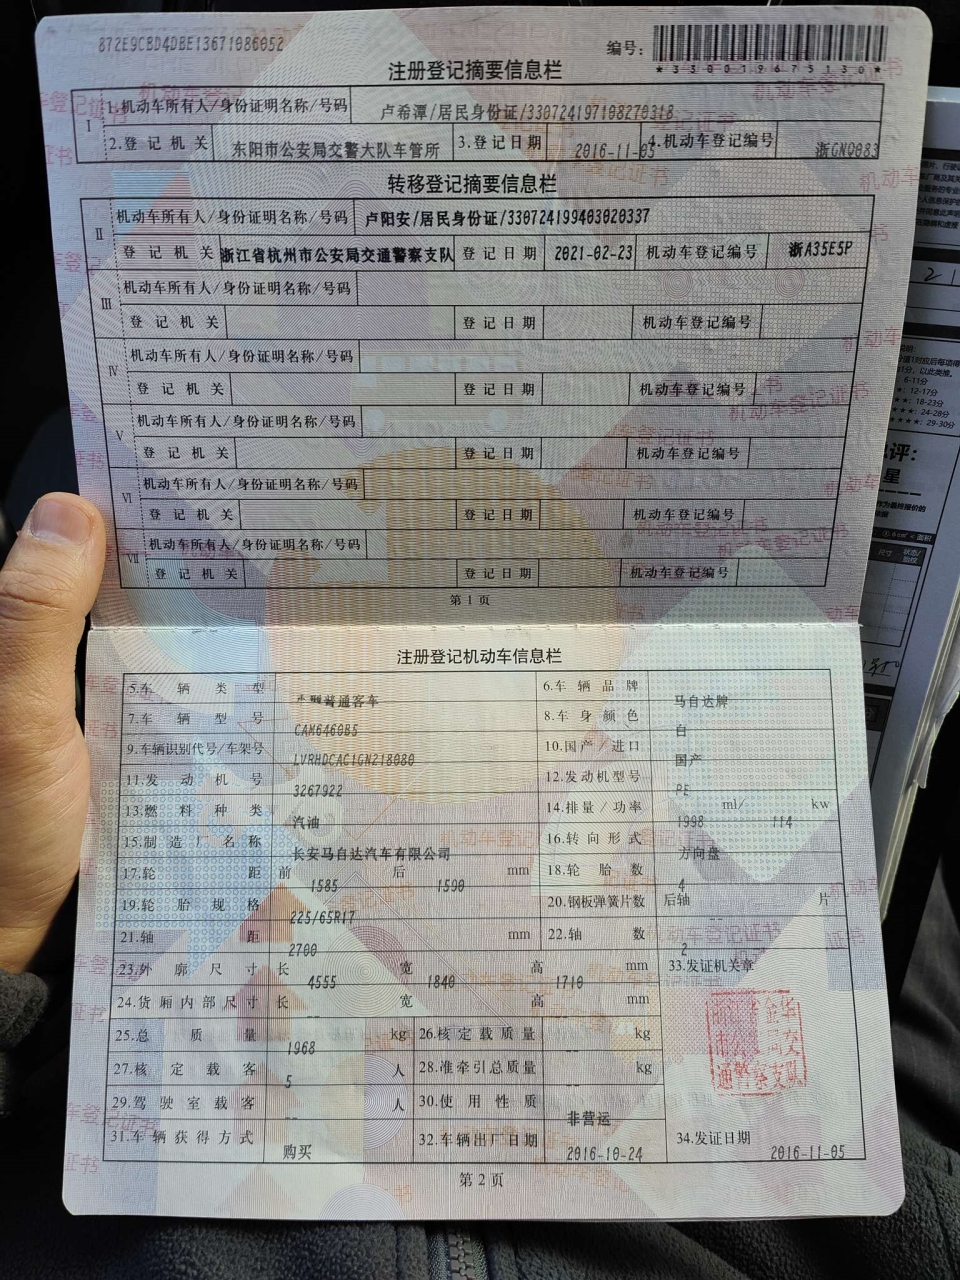 872E9CBD4DBE13671086052
编号:
*330019675130*
注册登记摘要信息栏
I 1.机动车所有人/身份证明名称/号码 卢希潭/居民身份证/330724197108270318
2.登记机关 东阳市公安局交警大队车管所 3.登记日期 2016-11-05 4.机动车登记编号 浙GNQ083
转移登记摘要信息栏
II 机动车所有人/身份证明名称/号码 卢阳安/居民身份证/330724199403020337
登记机关 浙江省杭州市公安局交通警察支队 登记日期 2021-02-23 机动车登记编号 浙A35E5P
III 机动车所有人/身份证明名称/号码
登记机关 登记日期 机动车登记编号
IV 机动车所有人/身份证明名称/号码
登记机关 登记日期 机动车登记编号
V 机动车所有人/身份证明名称/号码
登记机关 登记日期 机动车登记编号
VI 机动车所有人/身份证明名称/号码
登记机关 登记日期 机动车登记编号
VII 机动车所有人/身份证明名称/号码
登记机关 登记日期 机动车登记编号
第1页
注册登记机动车信息栏
5.车辆类型 普通客车 6.车辆品牌 马自达牌
7.车辆型号 CAM6460B5 8.车身颜色 白
9.车辆识别代号/车架号 LVRHDCAC1GN218080 10.国产/进口 国产
11.发动机号 3267922 12.发动机型号 PE
13.燃料种类 汽油 14.排量/功率 1998 ml/ 114 kw
15.制造厂名称 长安马自达汽车有限公司 16.转向形式 方向盘
17.轮距 前 1585 后 1590 mm 18.轮胎数 4
19.轮胎规格 225/65R17 20.钢板弹簧片数 后轴 -- 片
21.轴距 2700 mm 22.轴数 2
23.外廓尺寸 长 4555 宽 1840 高 1710 mm 33.发证机关章
24.货厢内部尺寸 长 -- 宽 高 mm
25.总质量 1968 kg 26.核定载质量 -- kg
27.核定载客 5 人 28.准牵引总质量 -- kg
29.驾驶室载客 -- 人 30.使用性质 非营运
31.车辆获得方式 购买 32.车辆出厂日期 2016-10-24 34.发证日期 2016-11-05
浙江省金华
市公安局交
通警察支队
第2页
6-11分
12-17分
18-23分
24-28分
29-30分
评:
星
尺寸